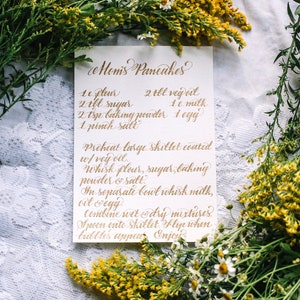 Mom's Pancakes
1 c flour 2 tbl veg oil
2 tbl sugar 1 c milk
2 tsp baking powder 1 egg
1 pinch salt
Preheat large skillet coated
w/ veg oil.
Whisk flour, sugar, baking
powder & salt.
In separate bowl whisk milk,
oil & egg.
Combine wet & dry mixtures.
Spoon onto skillet. Flip when
bubbles appear. Enjoy!